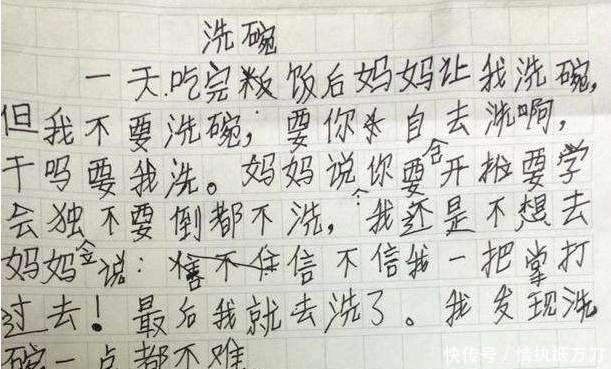 洗碗
一天.吃完粄饭后妈妈让我洗碗,
但我不要洗碗,要你自去洗啊,
干吗要我洗。妈妈说你要会开始要学
会独不要倒都不洗,我还是不想去
妈妈会说:信不信我一把掌打
过去!最后我就去洗了。我发现洗
碗一点都不难
快传号/情执抵万刀